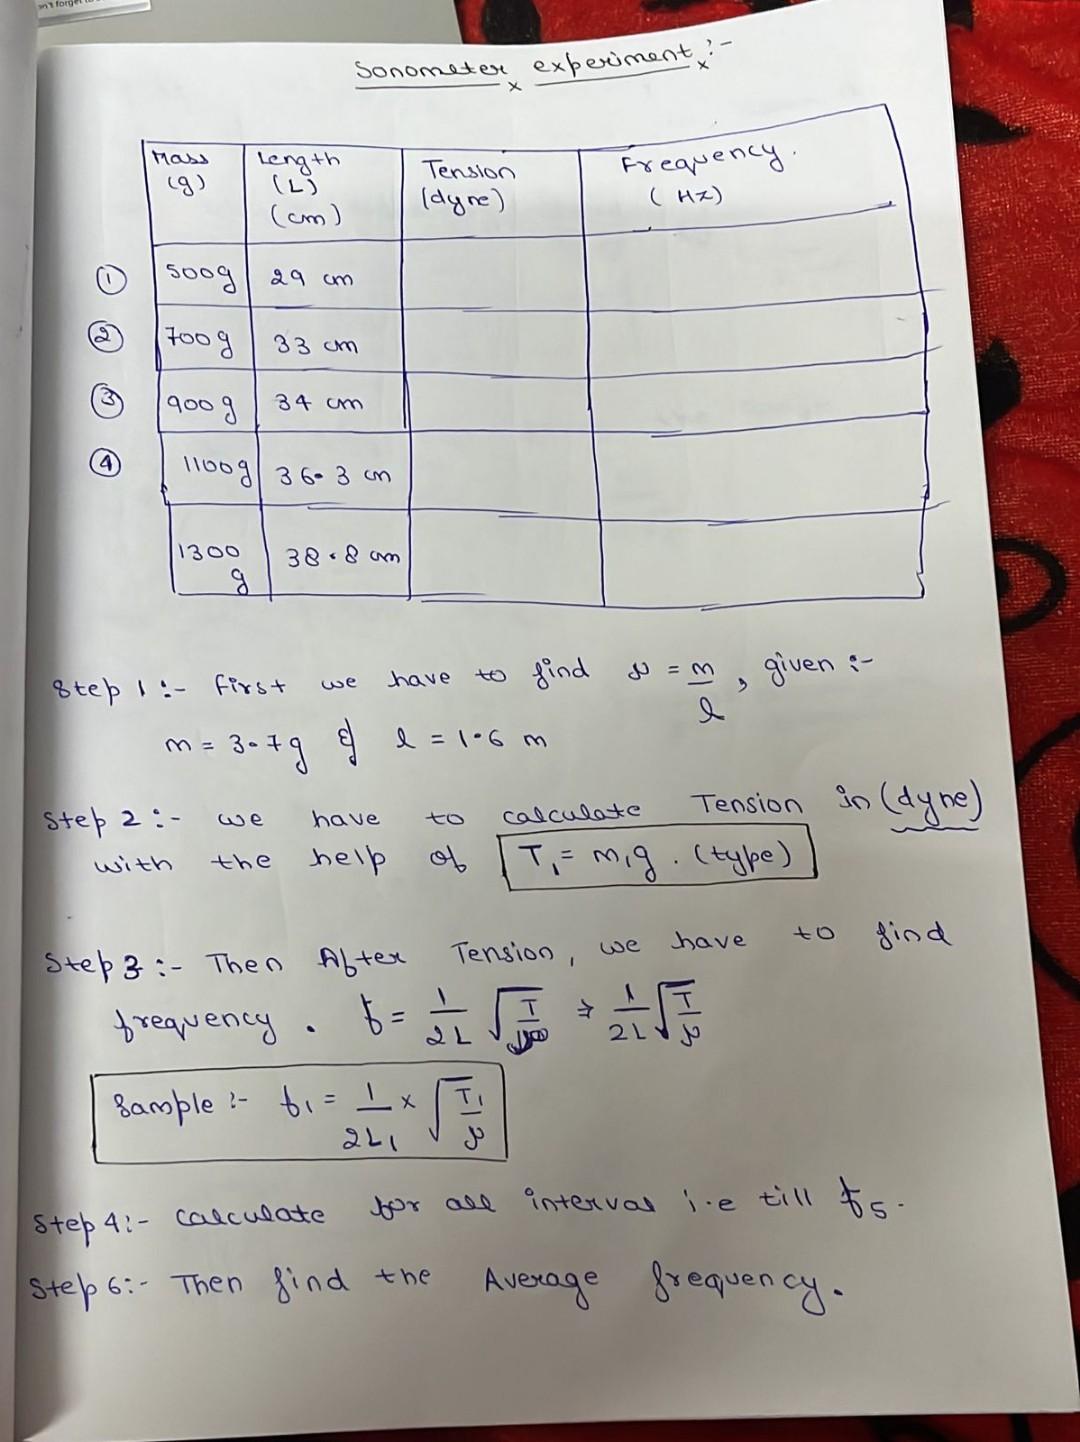 on't forget to
Sonometer experiment :-
Mass (g) Length (L) (cm) Tension (dyne) Frequency. (Hz)
① 500g 29 cm
② 700g 33 cm
③ 900g 34 cm
④ 1100g 36.3 cm
1300 g 38.8 cm
Step 1 :- First we have to find μ = m/l , given :-
m = 3.7g & l = 1.6 m
Step 2 :- we have to calculate Tension in (dyne)
with the help of T₁ = m₁g . (type)
Step 3 :- Then After Tension, we have to find
frequency . f = 1/2L √T/μ ⇒ 1/2L √T/μ
Sample :- f₁ = 1/2L₁ × √T₁/μ
Step 4 :- Calculate for all interval i.e till f₅.
Step 6 :- Then find the Average frequency.